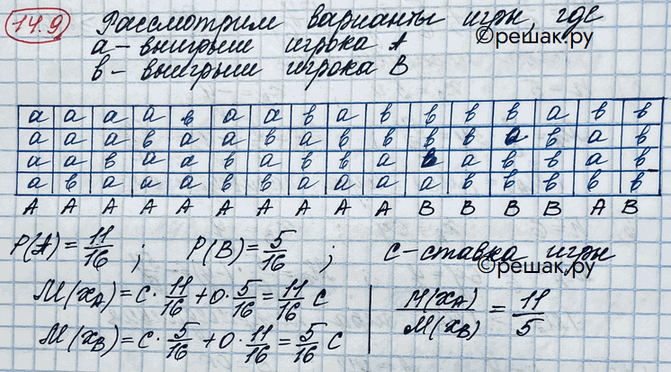 14.9 Рассмотрим варианты игры, где
©решак.ру
а – выигрыш игрока А
в – выигрыш игрока В
а а а а в а а в а в в в в а в в
а а а в а а в а в в в в а в а в
а а в а а в а в в а в а в в а в
а в а а а в в а а а а в в в в в
А А А А А А А А А А В В В В А В
P(A) = 11/16 ; P(B) = 5/16 ; с – ставка игры
©решак.ру
M(x_A) = c · 11/16 + 0 · 5/16 = 11/16 c
M(x_B) = c · 5/16 + 0 · 11/16 = 5/16 c
M(x_A)/M(x_B) = 11/5